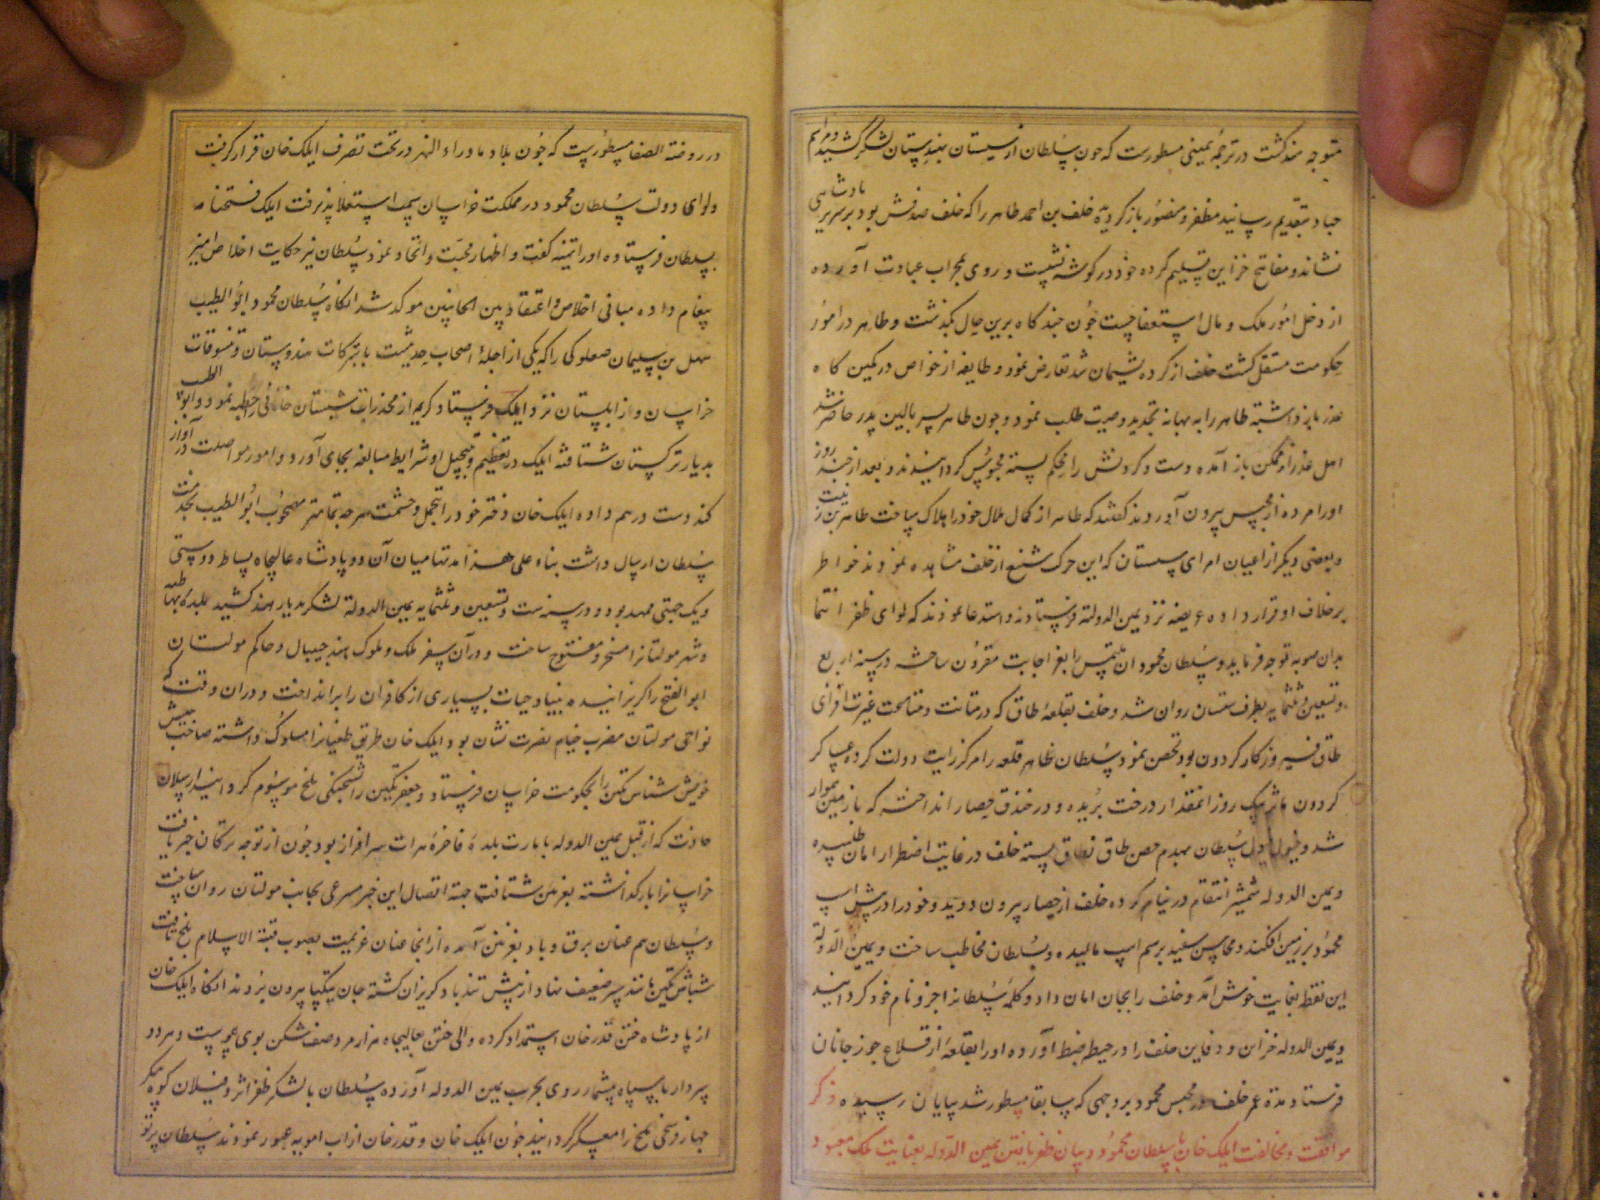 متوجه هند گشت در ترجمه یمینی مسطورست که چون سلطان از سیستان بهندوستان لشکر کشید و مراسم
جهاد بتقدیم رسانید مظفر و منصور باز گردید خلف بن احمد طاهر را که خلف صدقش بود بر سریر پادشاهی
نشاند و مفاتیح خزاین تسلیم کرده خود در گوشه نشست و روی بمحراب عبادت آورده
از دخل امور ملک و مال استعفا جست چون چند گاه برین حال بگذشت و طاهر در امور
حکومت مستقل گشت خلف از کرده پشیمان شد تعارض نمود و طایفه از خواص در کمین گاه
غدر باز داشته طاهر را به بهانه تجدید وصیت طلب نمود و چون طاهر بسر بالین پدر حاضر شد
اهل غدر از ممکن باز آمده دست و گردنش را محکم بسته محبوس گردانیدند و بعد از چند روز
او را مرده از محبس بیرون آوردند گفتند که طاهر از کمال ملال خود را هلاک ساخت طاهر بن زینب
و بعضی دیگر از اعیان امرای سیستان که این حرکت شنیع از خلف مشاهده نمودند خواطر
بر خلاف او قرار داده عریضه نزد یمین الدوله فرستادند و استدعا نمودند که لوای ظفر انتما
بدان صوب توجه فرماید و سلطان محمود آن ملتمس را بعز اجابت مقرون ساخته در سنه اربع
و تسعین و ثلثمایه بطرف سیستان روان شد و خلف بقلعه طاق که در متانت و مناعت غیرت افزای
طاق فیروزه کار گردون بود تحصن نمود سلطان ظاهر قلعه را مرکز رایت دولت کرده عساکر
گردون مآثر بیک روز آنمقدار درخت بریده و در خندق حصار انداخته که با زمین هموار
شد و خیول و فیول سلطان بهدم حصن طاق نطاق بسته خلف در غایت اضطرار امان طلبیده
و یمین الدوله شمشیر انتقام در نیام کرده خلف از حصار بیرون دوید و خود را در پیش اسپ
محمود بر زمین افکند و محاسن سفید بر سم اسپ مالیده و بسلطان مخاطب ساخت و یمین الدوله
این نقطه بغایت خوش آمد و خلف را بجان امان داد و کلمه سلطان را جزو نام خود گردانید
و یمین الدوله خزاین و دفاین خلف را در حیطه ضبط آورده او را بقلعه از قلاع جوزجانان
فرستاد و مدة عمر خلف در محبس محمود بر وجهی که سابقا مسطور شد بپایان رسیده ذکر
موافقت و مخالفت ایلک خان با سلطان محمود و بیان ظفر یافتن یمین الدوله بعنایت ملک معبود
در روضة الصفا مسطورست که چون بلاد ماوراء النهر در تحت تصرف ایلک خان قرار گرفت
و لوای دولت سلطان محمود در مملکت خراسان سمت استعلا پذیرفت ایلک فتحنامه
بسلطان فرستاده او را تهنیه گفت و اظهار محبت و اتحاد نمود سلطان نیز حکایت اخلاص آمیز
پیغام داده مبانی اخلاص و اعتقاد بین الجانبین موکد شد آنگاه سلطان محمود ابو الطیب
سهل بن سلیمان صعلوکی را که یکی از اجله اصحاب حدیث است با تبرکات هندوستان و تنسوقات
خراسان و زابلستان نزد ایلک فرستاد و کریمه از مخدرات شبستان خانی را خطبه نمود و ابو الطیب
بدیار ترکستان شتافته ایلک در تعظیم و تبجیل او شرایط مبالغه بجای آورد و امور مواصلت در آواز
کند دست در هم داده ایلک خان دختر خود را بتجمل و حشمت هر چه تمامتر مصحوب ابو الطیب بخدمت
سلطان ارسال داشت بناء علی هذا مدتها میان آن دو پادشاه عالیجاه بساط دوستی
و یک جهتی ممهد بود و در سنه ست و تسعین و ثلثمایه یمین الدوله لشکر بدیار هند کشید بلده بهاطیه
و شهر مولتان را مسخر و مفتوح ساخت و در آن سفر ملک و ملوک هند جیپال و حاکم مولتان
ابو الفتح را گریزانیده بنیاد حیات بسیاری از کافران را برانداخت و در آن وقت که
نواحی مولتان مضرب خیام نصرت نشان بود ایلک خان طریق طغیان را مسلوک داشته صاحب جیش
خویش شباشی تکین را بحکومت خراسان فرستاد و جعفر تکین را بشحنگی بلخ موسوم گردانید ارسلان
حاذب که از قبل یمین الدوله بامارت بلده فاخره هرات سرافراز بود چون از توجه ترکان خبر یافت
خراسان را باز گذاشته بغزنین شتافت جهة اتصال این خبر مسرعی بجانب مولتان روان ساخت
و سلطان هم عنان برق و باد بغزنین آمده از آنجا عنان عزیمت بصوب قبة الاسلام بلخ تافت
شباشی تکین مانند پسر ضعیف نهاد از پیش تند باد گریزان گشته جان بتک پا بیرون بردند آنگاه ایلک خان
از پادشاه ختن قدر خان استمداد کرده والی ختن عالیجاه هزار مرد صف شکن بوی پیوست و هر دو
سردار با سپاه بیشمار روی بحرب یمین الدوله آورده سلطان با لشکر ظفر اثر و فیلان کوه پیکر
چهار فرسخی بلخ را معسکر گردانید چون ایلک خان و قدر خان از آب امویه عبور نمودند سلطان پرتو